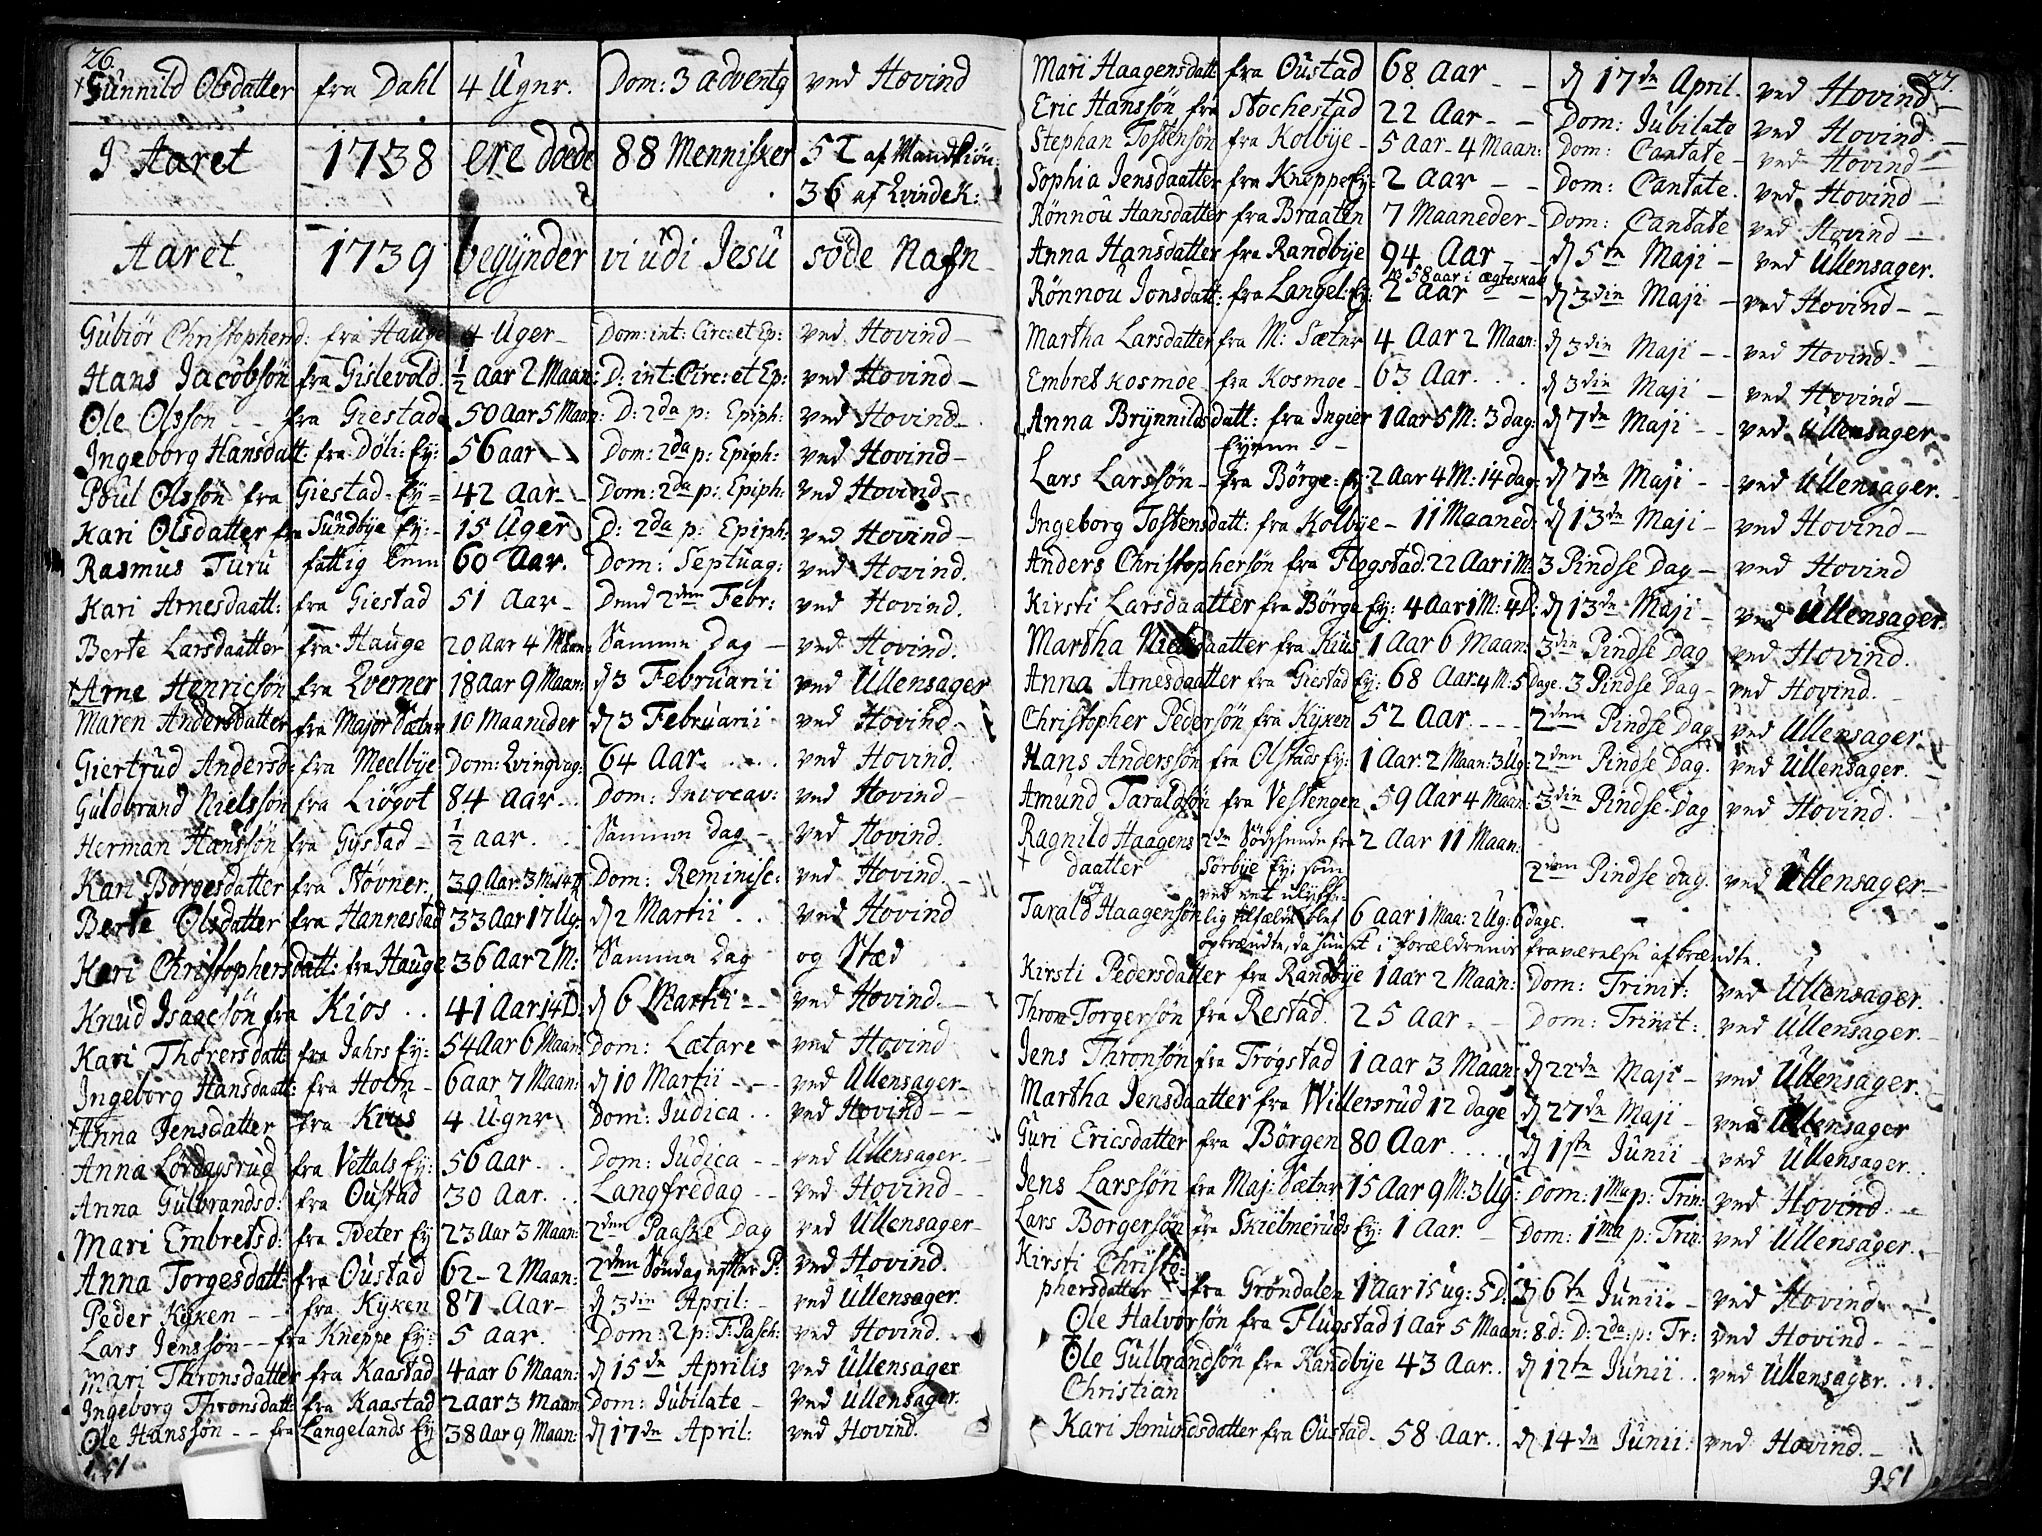 26.
Gunnild Olsdatter fra Dahl 4 Ugnr. Dom: 3 adventg ved Hovind
I Aaret 1738 ere döede 88 Mennisker 52 af Mandkiön:
36 af Qvindek:
Aaret 1739 begÿnder vi udi Jesu söde Nafn
Gubiör Christophersd: fra Hauge 4 Uger Dom: int: Circ: et Ep: ved Hovind
Hans Jacobsön fra Gislevold ½ Aar 2 Maan: D: int: Circ: et Ep: ved Hovind
Ole Olssön fra Giestad 50 Aar 5 Maan: D: 2da p: Epiph: ved Hovind
Ingeborg Hansdatt: fra Döli: Eÿ: 56 aar Dom: 2da p: Epiph: ved Hovind
Poul Olssön fra Giestad Eÿ 42 Aar Dom: 2da p: Epiph: ved Hovind
Kari Olsdatter fra Sundbÿe Eÿ: 15 Uger D: 2da p: Epiph: ved Hovind
Rasmus Turu fattig Enn 60 Aar. Dom: Septuag: ved Hovind.
Kari Arnesdaatt: fra Giestad 51 Aar Dend 2den Febr: ved Hovind.
Berte Larsdaatter fra Hauge 20 Aar 4 Maan: Samme Dag ved Hovind.
Arne Henricsön fra Qverner 18 aar 9 Maan: d 3 Februarii ved Ullensager
Maren Andersdatter fra Major Sæter 10 Maaneder d 3 Februarii ved Hovind
Giertrud Andersd: fra Meelbÿe Dom: Qvinqvag: 64 Aar. ved Hovind.
Guldbrand Nielssön fra Liögot 84 Aar Dom: Invocav: ved Hovind
Herman Hanssön fra Gÿstad ½ aar. Samme dag ved Hovind.
Kari Borgesdatter fra Stövner. 39 Aar. 3 M: 14 D Dom: Reminisc: ved Hovind.
Berte Olsdatter fra Hannestad 33 Aar 17 Ug: d 2 Martii ved Hovind
Kari Christophersdatt: fra Hauge 36 Aar 2 M: Samme Dag og Stæd
Knud Isaacsön fra Kios 41 Aar 14 D: d 6 Martii ved Hovind.
Kari Thorersdatt: fra Jahrs Eÿ: 54 Aar 6 Maan: Dom: Lætare ved Hovind
Ingeborg Hansdaatt: fra Holm 6 aar 7 Maan: d 10 Martii ved Ullensager
Anna Jensdatter fra Kius 4 Ugnr Dom: Judica ved Hovind
Anna Lördagsrud fra Vettals Eÿ: 56 Aar. Dom: Judica ved Ullensager.
Anna Gulbrandsd: fra Oustad 30 Aar. Langfredag ved Hovind
Mari Embretsd: fra Teter Eÿ 23 Aar 3 Maan: 2den Paaske Dag ved Ullensager
Anna Torgesdatt: fra Oustad 62 2 Maan: 2den Söndag efter P: ved Hovind.
Peder Kÿxen fra Kÿxen 87 Aar d 3din April: ved Ullensager.
Lars Jenssön fra Kneppe Eÿ: 5 aar. Dom: 2 p: F: Pasch: ved Hovind.
Mari Thronsdatter fra Kaastad 4 aar 6 Maan: d 15de Aprilis ved Ullensager
Ingeborg Thronsdatt: fra Kaastad 2 aar 3 Maan: Dom: Jubilate ved Ullensager.
Ole Hanssön fra Langelands Eÿ 38 Aar 9 Maan: d 17de April: ved Hovind.
151
27.
Mari Haagensdatt fra Oustad 68 Aar d 17de April. ved Hovind
Eric Hanssön fra Stochestad 22 Aar Dom: Jubilate ved Hovind
Stephan Tostensön fra Kolbÿe 5 aar 4 Maan: Dom: Cantate ved Hovind
Sophia Jensdaatter fra Kneppe Eÿ: 2 Aar Dom: Cantate. ved Hovind
Rönnou Hansdatter fra Braaten 7 Maaneder Dom: Cantate ved Hovind
Anna Hansdatter fra Randbÿe 94 Aar d 5te Maji ved Ullensager.
58 aar i ægteskab
Rönnou Jonsdatt: fra Langel: Eÿ: 2 aar d 3din Maji ved Hovind
Martha Larsdatter fra M: Sæter 4 Aar 2 Maan: d 3din Maji ved Hovind
Embret Kosmoe fra Kosmoe 63 Aar. d 3din Maji ved Hovind
Anna Brÿnnildsdatt: fra Ingier 1 Aar 5 M: 3 dag: d 7de Maji ved Ullensager
Lars Larssön fra Börge: Eÿ: 2 Aar 4 M: 14 dag: d 7de Maji ved Ullensager.
Ingeborg Tostensdatt: fra Kolbÿe 11 Maaned: d 13de Maji ved Hovind
Anders Christophersön fra Flogstad. 22 Aar 1 M: 3 Pindse Dag ved Hovind
Kirsti Larsdaatter fra Börge Eÿ: 4 Aar 1 M: 4 D: d 13de Maji ved Ullensager.
Martha Nielsdaatter fra Kius 1 Aar 6 Maan: 3din Pindse Dag ved Hovind.
Anna Arnesdaatter fra Giestad Eÿ: 68 Aar 4 M: 5 Dage. 3 Pindse Dag ved Hovind.
Christopher Pedersön fra Kÿxen 52 Aar. 2den Pindse Dag ved Ullensager.
Hans Anderssön fra Olstads Eÿ: 1 Aar. 2 Maan: 3 Ug: 2den Pindse Dag. ved Ullensager.
Amund Taraldsön fra Vestengen 59 Aar 4 Maan: 3din Pindse Dag ved Hovind.
Ragnild Haagens 2de Södskende fra 2 Aar 11 Maan:
daatter Sörbÿe Eÿ: som 2den Pindse dag. ved Ullensager
og ved et ulykke-
Tarald Haagensön lig tilfælde blef 6 aar 1 Maa: 2 Ug: 6 dage.
opbrændte, da huuset i forældrenis fraværelse afbrændte.
Kirsti Pedersdatter fra Randbÿe 1 aar 2 Maan: Dom: Trinit: ved Ullensager.
Thron Torgersön fra Restad. 25 Aar Dom: Trinit: ved Ullensager.
Jens Thronsön fra Trögstad 1 aar 3 Maan: d 22de Maji ved Ullensager.
Martha Jensdaatter fra Willersrud 12 dage d 27de Maji ved Ullensager
Guri Ericsdatter fra Börgen 80 Aar d 1ste Junii ved Ullensager.
Jens Larssön fra Maj: Sæter 15 Aar 9 M: 3 Ug: Dom: 1ma p: Trin: ved Hovind.
Lars Borgersön fra Skielmeruds Eÿ: 1 Aar. Dom: 1ma p: Trin: ved Ullensager.
Kirsti Christo-
phersdatter fra Gröndalen 1 Aar 15 ug: 5 D: d 6te Junii. ved Hovind
Ole Halvorsön fra Flugstad 1 Aar 5 Maan: 8. d: D: 2da p: Tr: ved Hovind
Ole Gulbrandsön fra Randbÿe 43 Aar. d 12te Junii ved Ullensager.
Christian
Kari Amundsdatter fra Oustad 58 Aar. d 14de Junii ved Hovind.
151